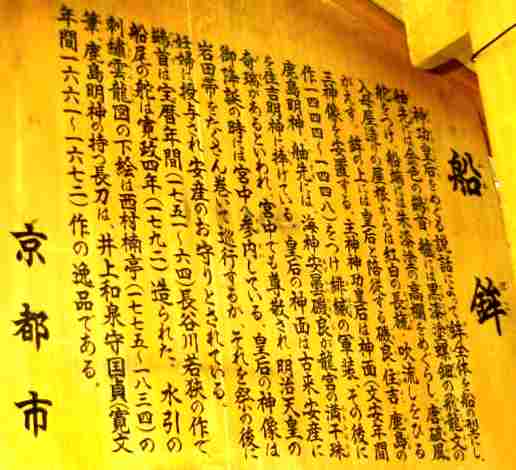 船鉾
神功皇后をめぐる説話によって、鉾全体を船の型にし、
舳先には金色の鷁首、艫には黒漆塗螺鈿の飛龍文の
舵をつけ、船端には朱漆塗の高欄をめぐらし、唐破風
入母屋造りの屋根からは紅白の長旒、吹流しをひる
がえす。鉾の上には皇后と陪従する磯良・住吉・鹿島の
三神像を安置する。主神神功皇后は神面(文安年間
作一四四四〜一四四八)をつけ緋縅の軍装、その後に
鹿島明神、舳先には海神安曇磯良が龍宮の満干珠
を住吉明神に捧げている。皇后の神面は古来安産に
奇瑞があるといわれ、宮中でも尊敬され、明治天皇の
御降誕の時は宮中へ参内している。皇后の神像は
岩田帯をたくさん巻いて巡行するが、それを祭の後に
妊婦に授与され安産のお守りとされている。
鷁首は宝暦年間(一七五一〜六四)長谷川若狭の作で、
船尾の舵は寛政四年(一七九二)造られた。水引の
刺繍雲龍図の下絵は西村楠亭(一七七五〜一八三四)の
筆、鹿島明神の持つ長刀は、井上和泉守国貞(寛文
年間一六六一〜一六七二)作の逸品である。
京都市